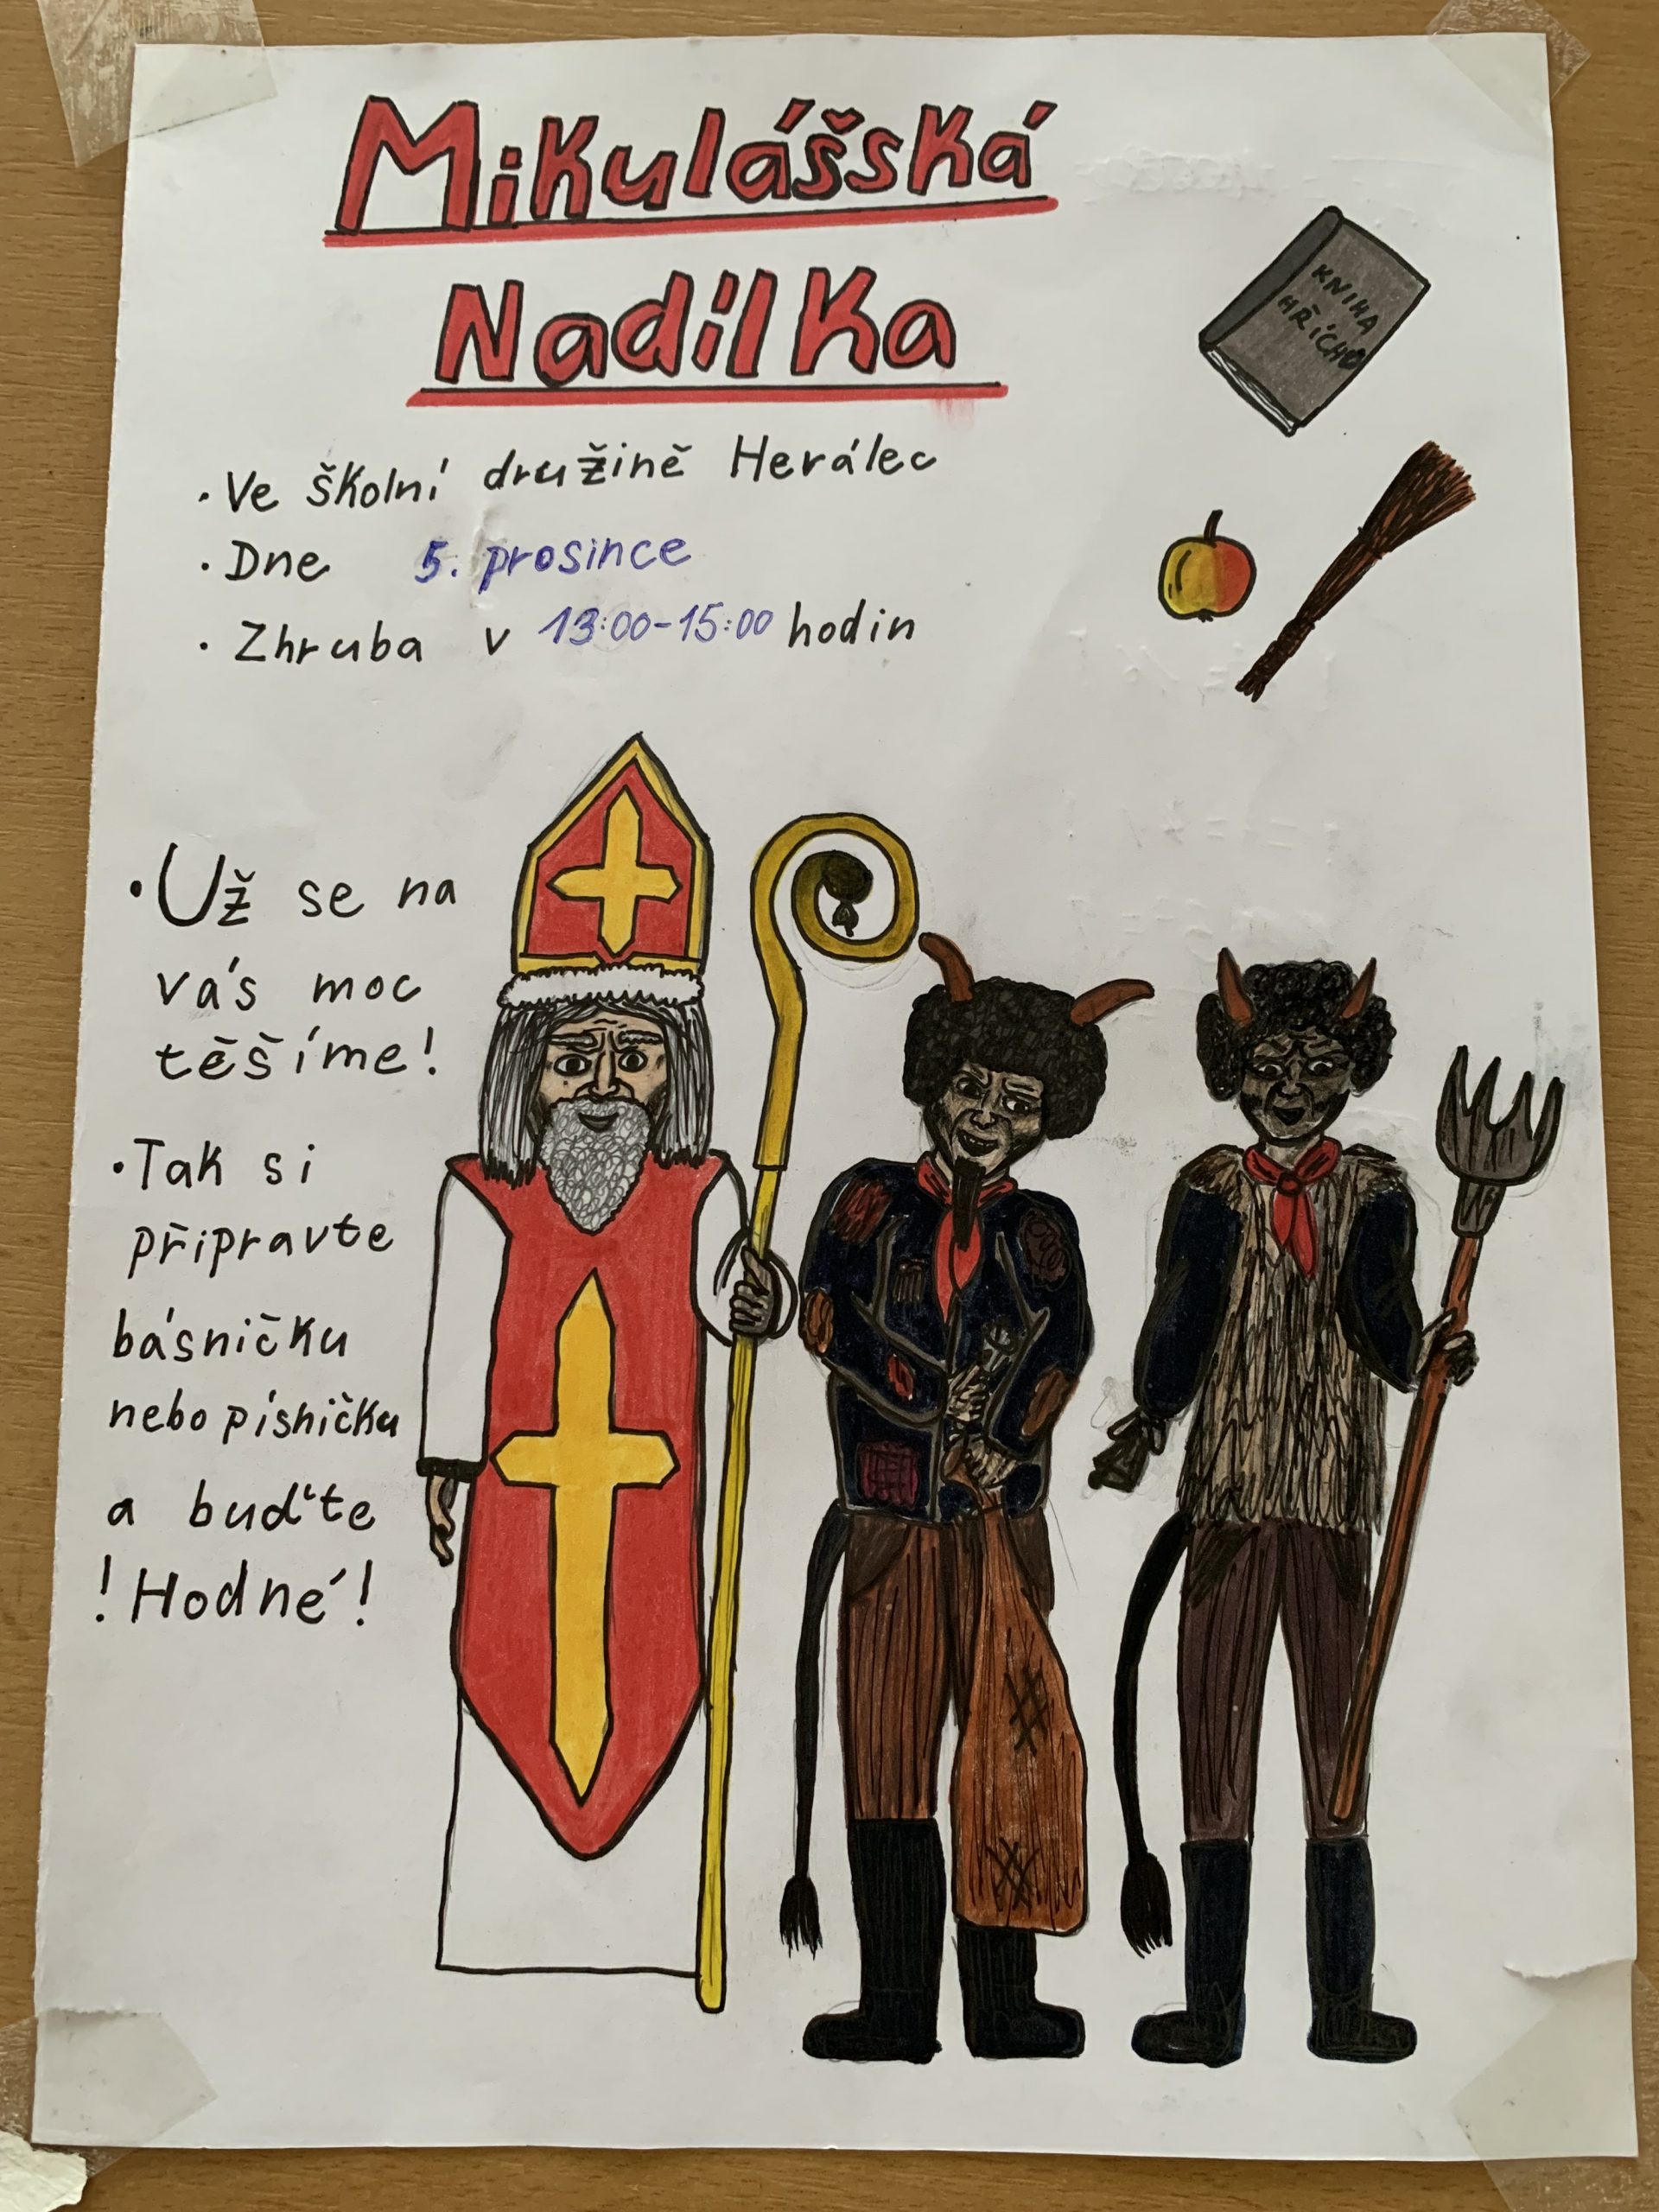 Mikulášská
Nadílka
KNIHA
HŘÍCHŮ
• Ve školní družině Herálec
• Dne 5. prosince
• Zhruba v 13:00-15:00 hodin
• Už se na
vás moc
těšíme!
• Tak si
připravte
básničku
nebo písničku
a buďte
! Hodné !